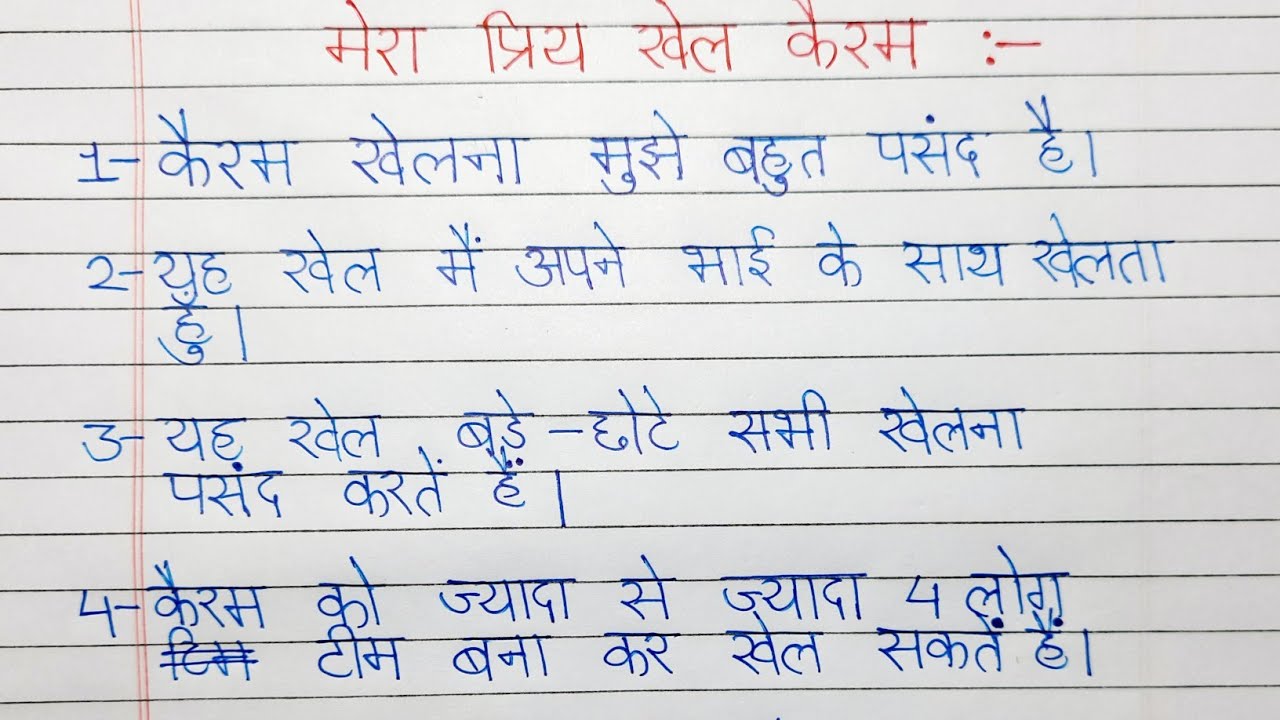 मेरा प्रिय खेल कैरम :-
1- कैरम खेलना मुझे बहुत पसंद है।
2- यह खेल मैं अपने भाई के साथ खेलता
हूँ।
3- यह खेल बड़े-छोटे सभी खेलना
पसंद करतें हैं।
4- कैरम को ज्यादा से ज्यादा 4 लोग
टीम बना कर खेल सकतें हैं।